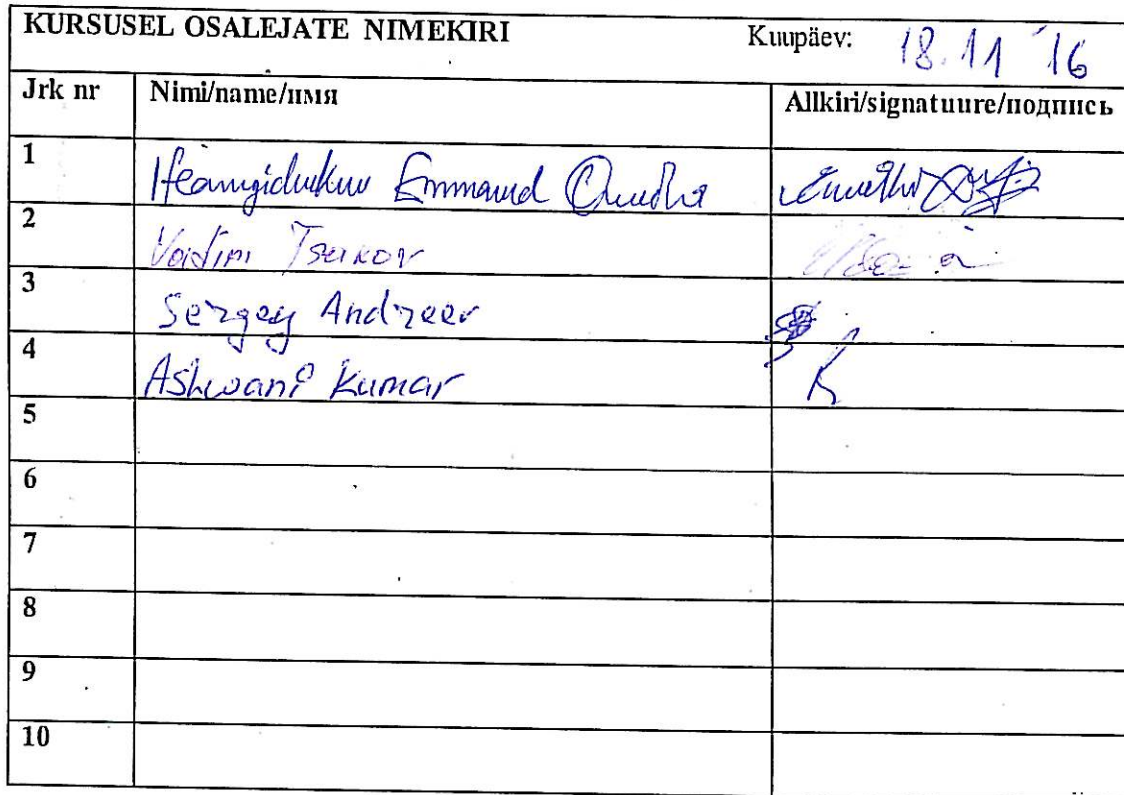 KURSUSEL OSALEJATE NIMEKIRI Kuupäev: 18.11 '16
Jrk nr Nimi/name/имя Allkiri/signatuure/подпись
1 Emmanuel
2 Vadim Tsakov
3 Sergey Andreev
4 Ashwani Kumar
5
6
7
8
9
10